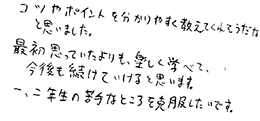 コツやポイントを分かりやすく教えてくれてうだな
と思いました。
最初思っていたよりも、楽しく学べて、
今後も続けていけると思います。
一、二年生の苦手なところを克服したいです。